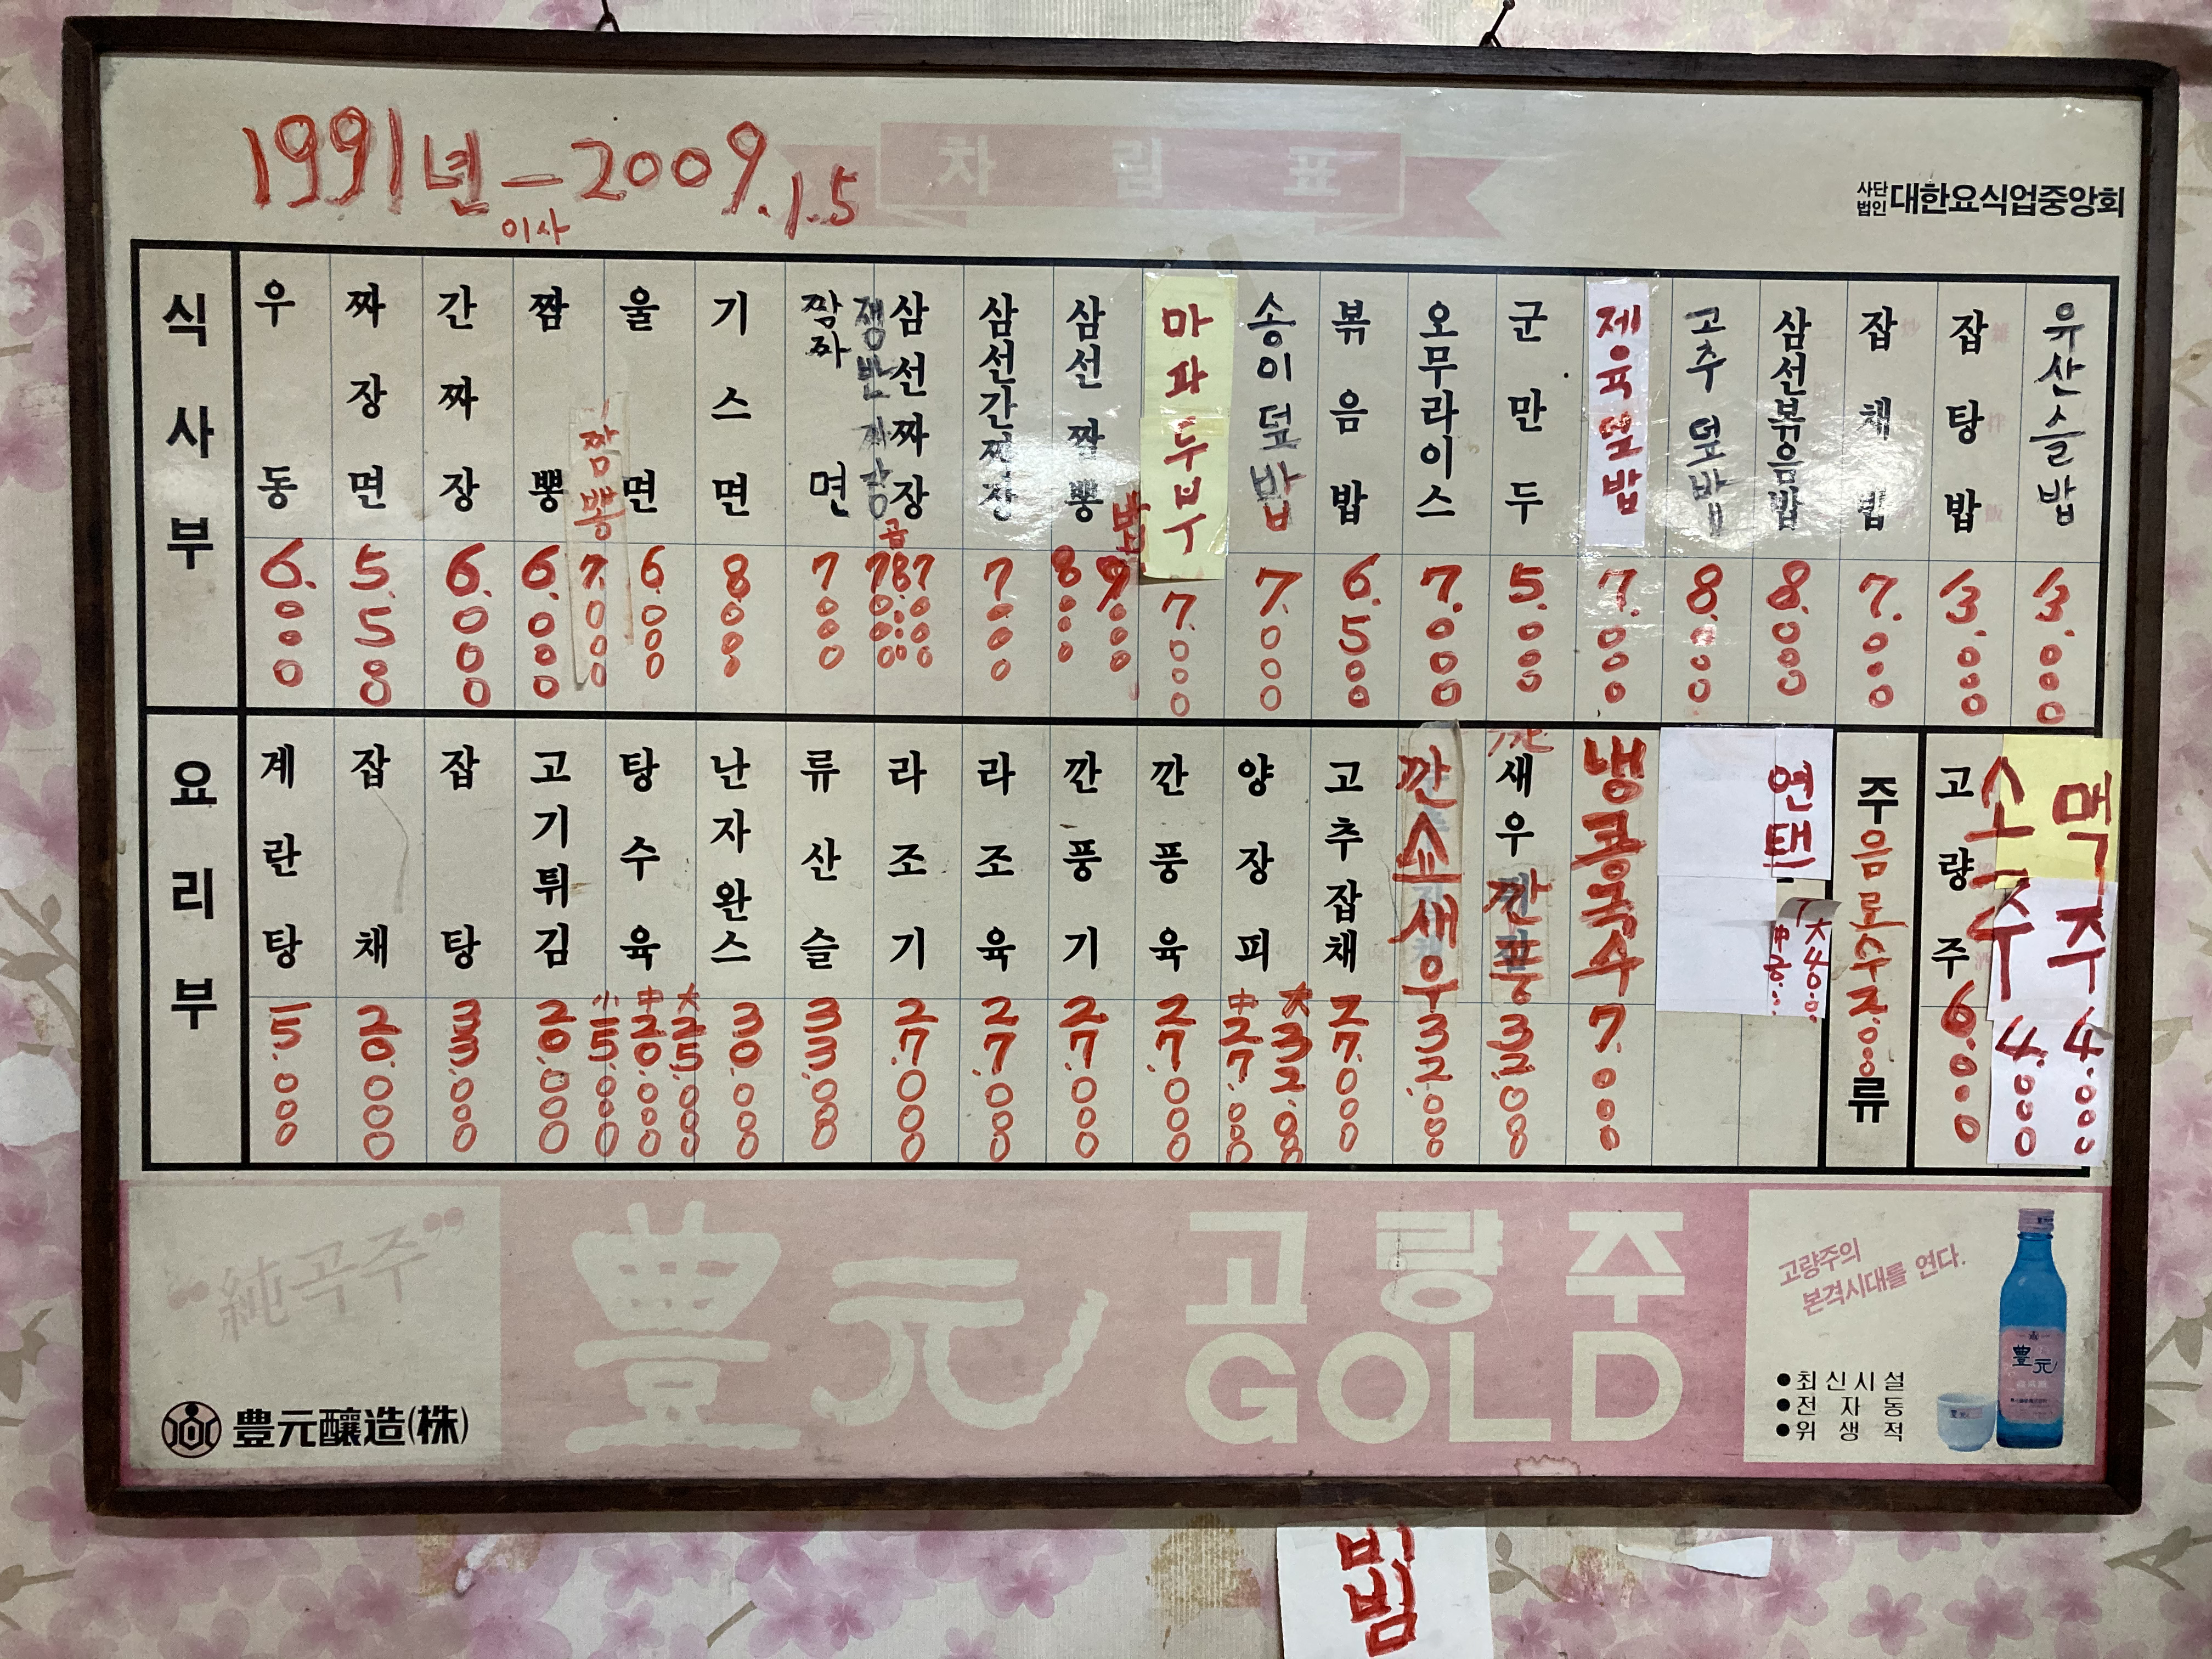 1991년 - 2009.1.5
이사
차림표
사단법인 대한요식업중앙회
식사부
우동 6.000
짜장면 5.500
간짜장 6.000
짬뽕 6.000
짬뽕 7.000
울면 6.000
기스면 8.000
짬짜면 7.000
쟁반짜장
삼선짜장 7.000
삼선간짜장 7.000
삼선짬뽕 8.000
밥 9.000
마파두부 7.000
송이덮밥 7.000
볶음밥 6.500
오무라이스 7.000
군만두 5.000
제육덮밥 7.000
고추덮밥 8.000
삼선볶음밥 8.000
잡채밥 7.000
잡탕밥 13.000
유산슬밥 13.000
요리부
계란탕 15.000
잡채 20.000
잡탕 33.000
고기튀김 20.000
탕수육 小 15.000 中 20.000 大 25.000
난자완스 30.000
류산슬 33.000
라조기 27.000
라조육 27.000
깐풍기 27.000
깐풍육 27.000
양장피 中 27.000 大 32.000
고추잡채 27.000
깐쇼새우 32.000
새우깐풍 32.000
냉콩국수 7.000
주류
음료수 2.000
고량주 6.000
소주 4.000
맥주 4.000
“純곡주”
豊元釀造(株)
豊元 고량주
GOLD
고량주의
본격시대를 연다.
●최신시설
●전자동
●위생적
豊元
비빔